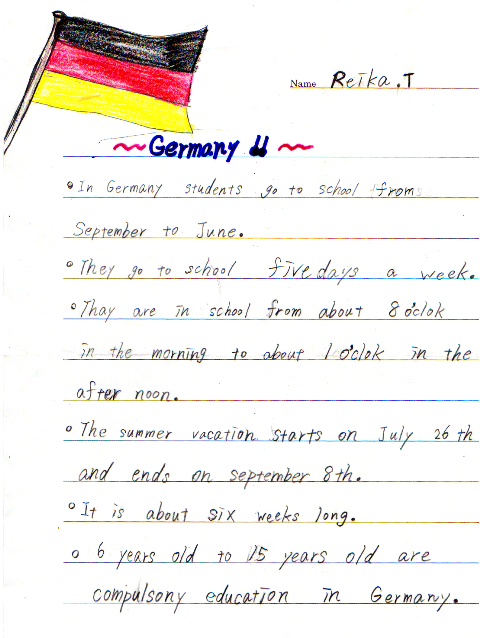 Name Reika.T
~Germany!!~
◦In Germany students go to school from
September to June.
◦They go to school five days a week.
◦Thay are in school from about 8 o'clok
in the morning to about 1 o'clok in the
after noon.
◦The summer vacation starts on July 26 th
and ends on september 8th.
◦It is about six weeks long.
◦6 years old to 15 years old are
compulsony education in Germany.